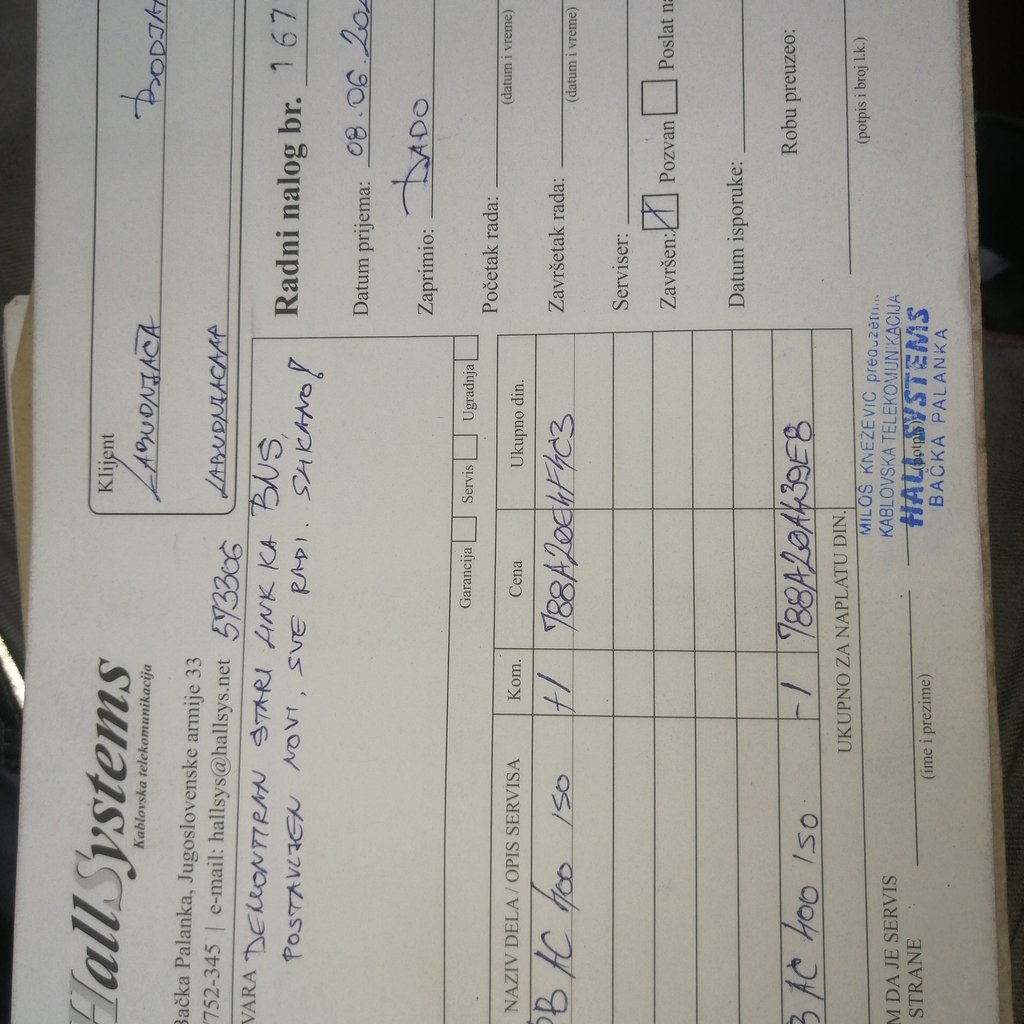 HallSystems
Kablovska telekomunikacija
Bačka Palanka, Jugoslovenske armije 33
752-345 | e-mail: hallsys@hallsys.net
573306
Klijent
LABUDNJAČA
LABUDNJACAAP
VARA DEMONTIRAN STARI LINK KA BNS,
POSTAVLJEN NOVI, SVE RADI. SLIKANO!
Garancija Servis Ugradnja
NAZIV DELA / OPIS SERVISA Kom. Cena Ukupno din.
AC 400 150 +1 788A20E4F4C3
AC 400 150 -1 788A20A439EB
UKUPNO ZA NAPLATU DIN.
Radni nalog br. 167
Datum prijema: 08.06.202
Zaprimio: DADO
Početak rada:
(datum i vreme)
Završetak rada:
(datum i vreme)
Serviser:
Završen: X Pozvan Poslat na
Datum isporuke:
Robu preuzeo:
(potpis i broj l.k.)
M DA JE SERVIS
STRANE
(ime i prezime)
(potpis)
MILOŠ KNEŽEVIĆ
KABLOVSKA TELEKOMUNIKACIJA
HALL SYSTEMS
BAČKA PALANKA